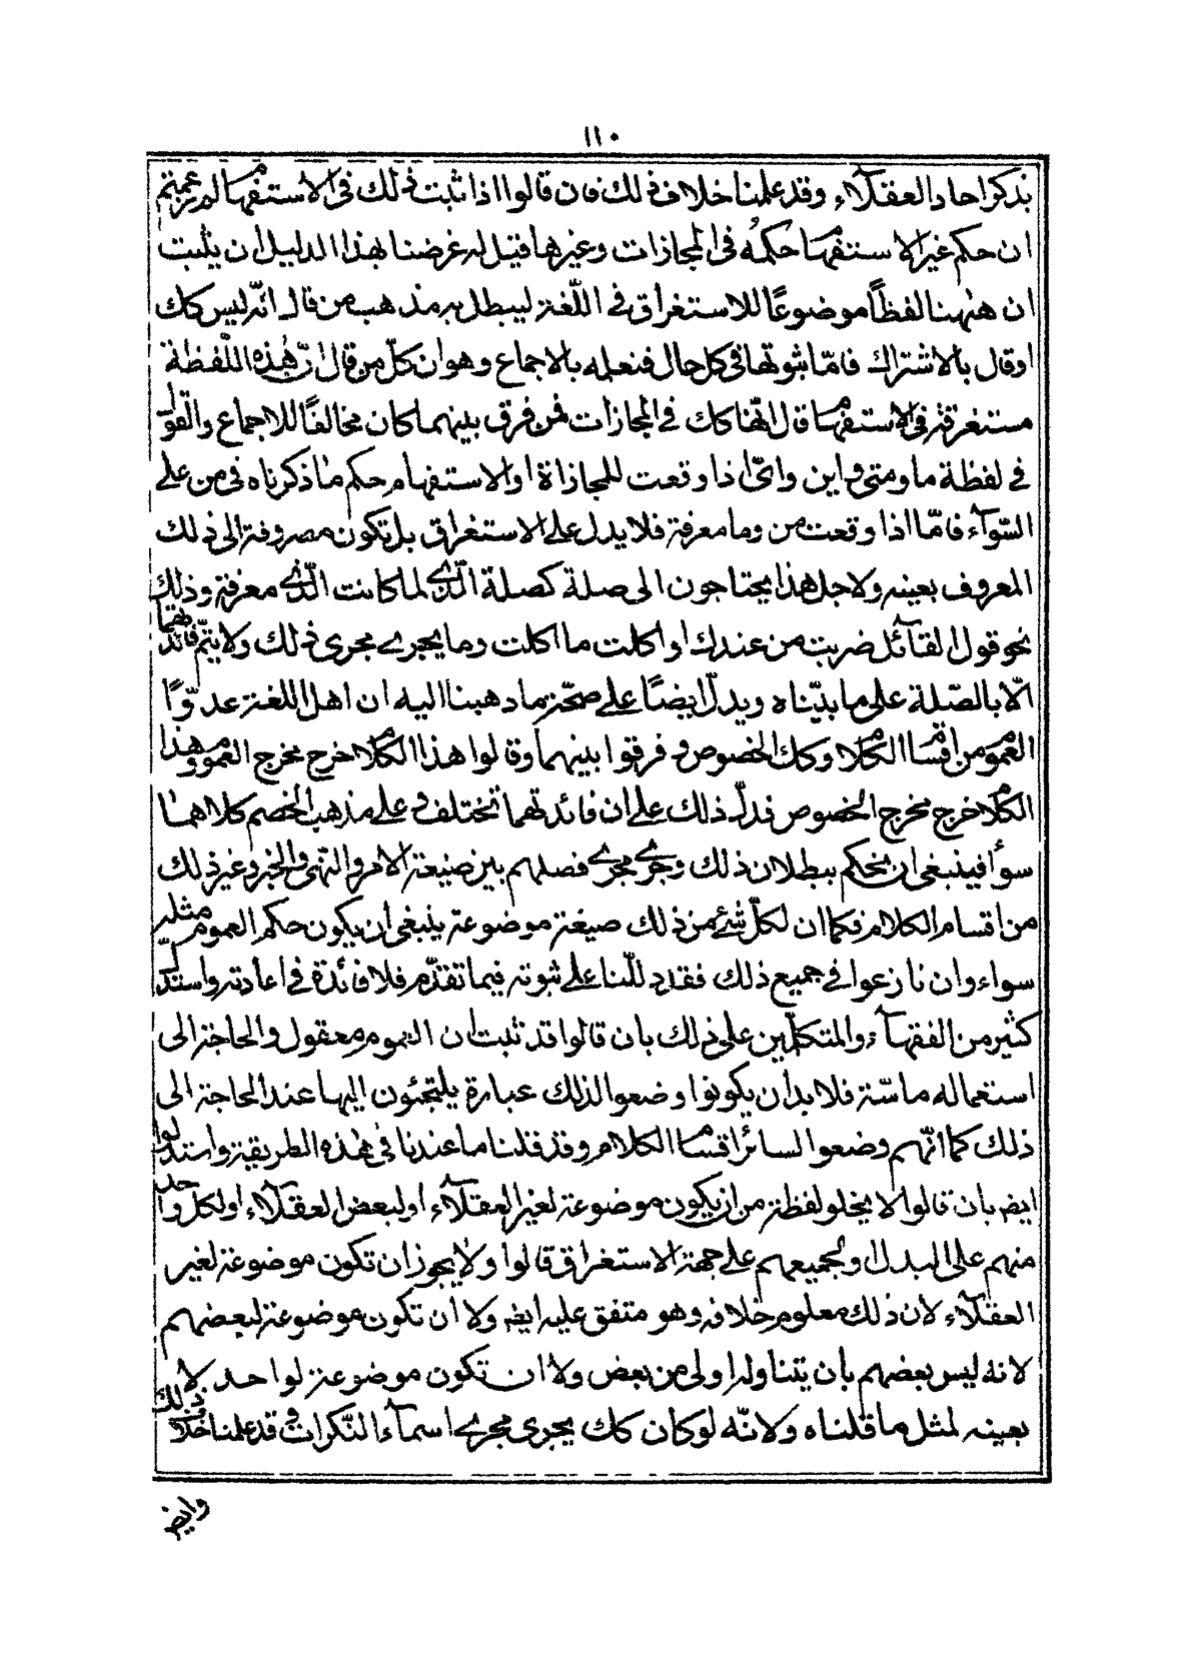 ١١٠
بذكر احاد العقلآء وقد علمنا خلاف ذلك فان قالوا اذا ثبت ذلك فى الاستفهام لم زعمتم
ان حكم غير الاستفهام حكمه فى المجازات وغيرها قيل له غرضنا بهذا الدليل ان يثبت
ان ههنا لفظاً موضوعًا للاستغراق فى اللّغة ليبطل به مذهب من قال انّه ليس كك
اوقال بالاشتراك فامّا ثبوتها فى كل حال فنعلمه بالاجماع وهو ان كلّ من قال انّ هذه اللّفظة
مستغرقة فى الاستفهام قال انّها كك فى المجازات فمن فرق بينهما كان مخالفًا للاجماع والقول
فى لفظة ما ومتى واين وائ اذا وقعت للمجازاة او الاستفهام حكم ما ذكرناه فى من على
السّوآء فامّا اذا وقعت من وما معرفة فلا يدل على الاستغراق بل تكون مصروفة الى ذلك
المعروف بعينه ولاجل هذا يحتاجون الى صلة كصلة الّذى لما كانت الّذى معرفة وذلك
نحو قول القآئل ضربت من عندك او اكلت ما اكلت وما يجرى مجرى ذلك ولا يتمّ فائدتهما
الّا بالصّلة على ما بيّنّاه ويدلّ ايضًا على صحّة ما ذهبنا اليه ان اهل اللغة عدّوّا
العموم من اقسام الكلام وكك الخصوص وفرقوا بينهما وقالوا هذا الكلام خرج مخرج العموم وهذا
الكلام خرج مخرج الخصوص فدلّ ذلك على ان فائدتهما تختلف وعلى مذهب الخصم كلاهما
سوأ فينبغى ان يحكم ببطلان ذلك وجرى مجرى فصلهم بين صيغة الامر والنهى والخبر وغير ذلك
من اقسام الكلام فكما ان لكلّ شئ من ذلك صيغة موضوعة ينبغى ان يكون حكم العموم مثله
سواء وان نازعوا فى جميع ذلك فقد دللّنا على ثبوته فيما تقدّم فلا فائدة فى اعادته واستدلّ
كثير من الفقهآء والمتكلّمين على ذلك بان قالوا قد ثبت ان العموم معقول والحاجة الى
استعماله ماسّة فلا بد ان يكونوا وضعوا لذلك عبارة يلتجئون اليها عند الحاجة الى
ذلك كما انّهم وضعوا لسائر اقسام الكلام وقد قلنا ما عندنا فى هذه الطريقة واستدلوا
ايض بان قالوا لا يخلو لفظة من ان يكون موضوعة لغير العقلآء او لبعض العقلآء او لكل واحد
منهم على البدل او لجميعهم على جهة الاستغراق قالوا ولا يجوز ان تكون موضوعة لغير
العقلآء لان ذلك معلوم خلافه وهو متفق عليه ايض ولا ان تكون موضوعة لبعضهم
لانه ليس بعضهم بان يتناوله اولى من بعض ولا ان تكون موضوعة لواحد لا
بعينه لمثل ما قلناه ولانّه لو كان كك يجرى مجرى اسمآء النّكرات وقد علمنا خلاف ذلك
وايض